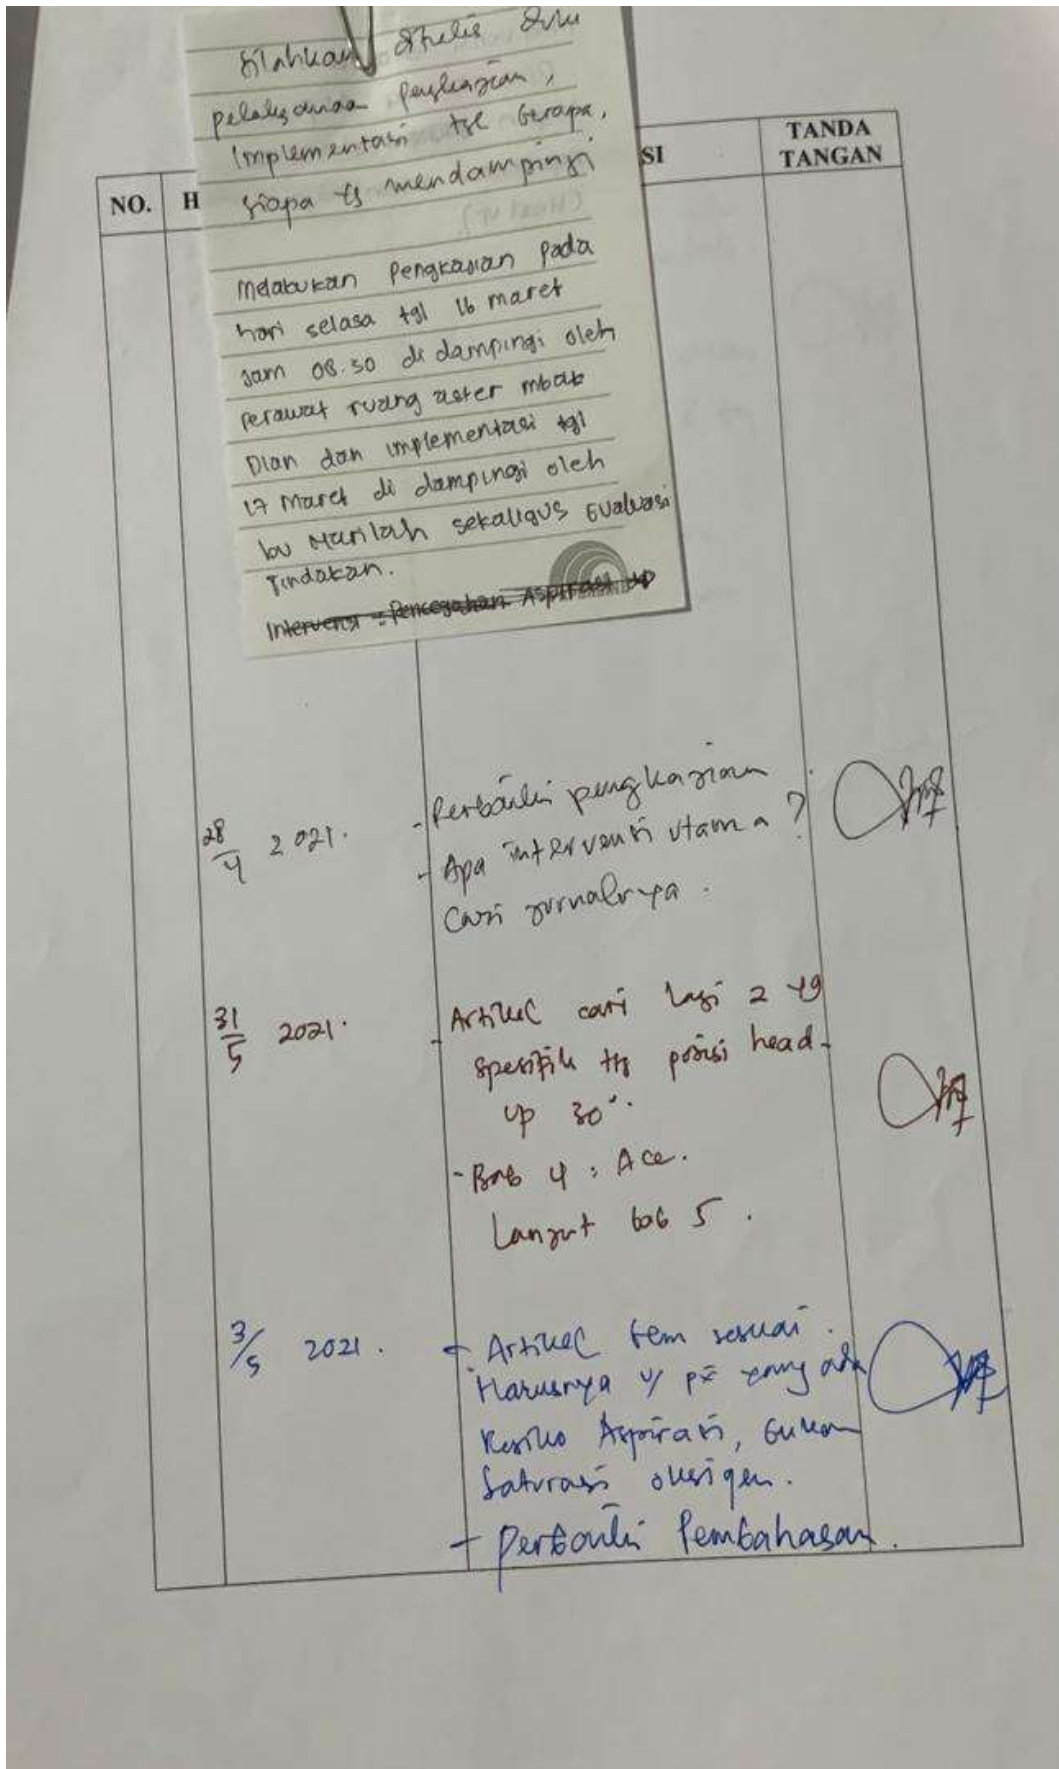 Silahkan ditulis dulu
pelaksanaan pengkajian,
Implementasi tgl berapa,
siapa yg mendampingi
Melakukan Pengkajian Pada
hari selasa tgl 16 maret
Jam 08.30 di dampingi oleh
perawat ruang aster mbak
Dian dan implementasi tgl
17 maret di dampingi oleh
Ibu Marilah sekaligus Evaluasi
Tindakan.
Intervensi : Pencegahan Aspirasi
NO.
H
SI
TANDA
TANGAN
28/4 2021.
- Perbaiki pengkajian
- Apa intervensi utama ?
Cari jurnalnya.
31/5 2021.
- Artikel cari lagi 2 yg
spesifik ttg posisi head-
up 30°.
- Bab 4 : Acc.
Lanjut bab 5.
3/5 2021.
- Artikel blm sesuai.
Harusnya u/ px yang ada
Resiko Aspirasi, bukan
Saturasi oksigen.
- Perbaiki Pembahasan.